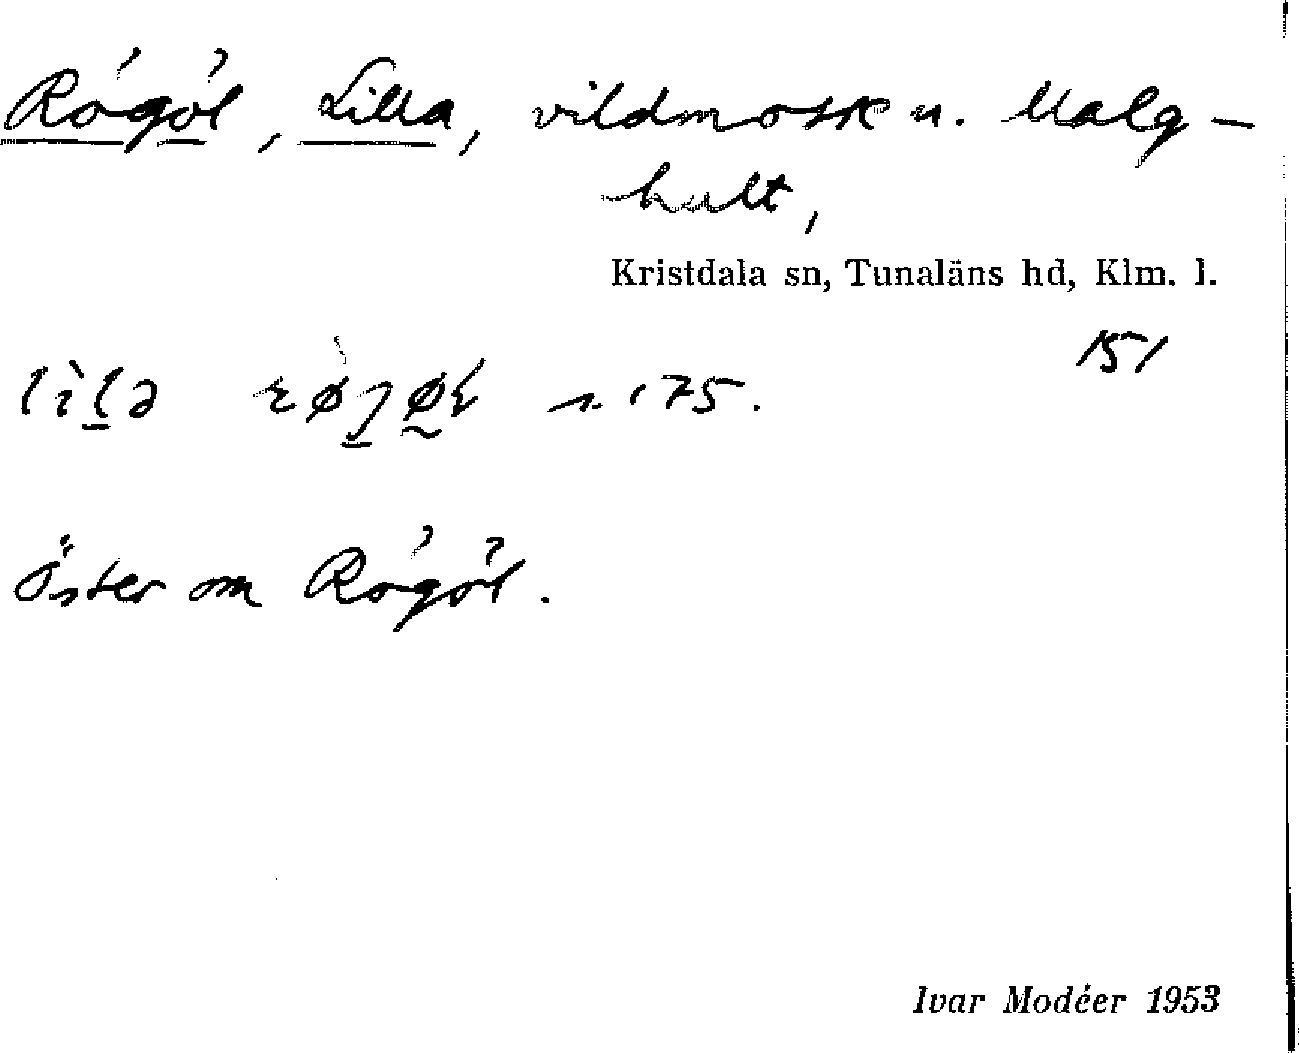 Rögöl, Lilla, vildmosse n. Malg-
hult,
Kristdala sn, Tunaläns hd, Klm. l.
151
s. 175.
Öster om Rögöl.
Ivar Modéer 1953